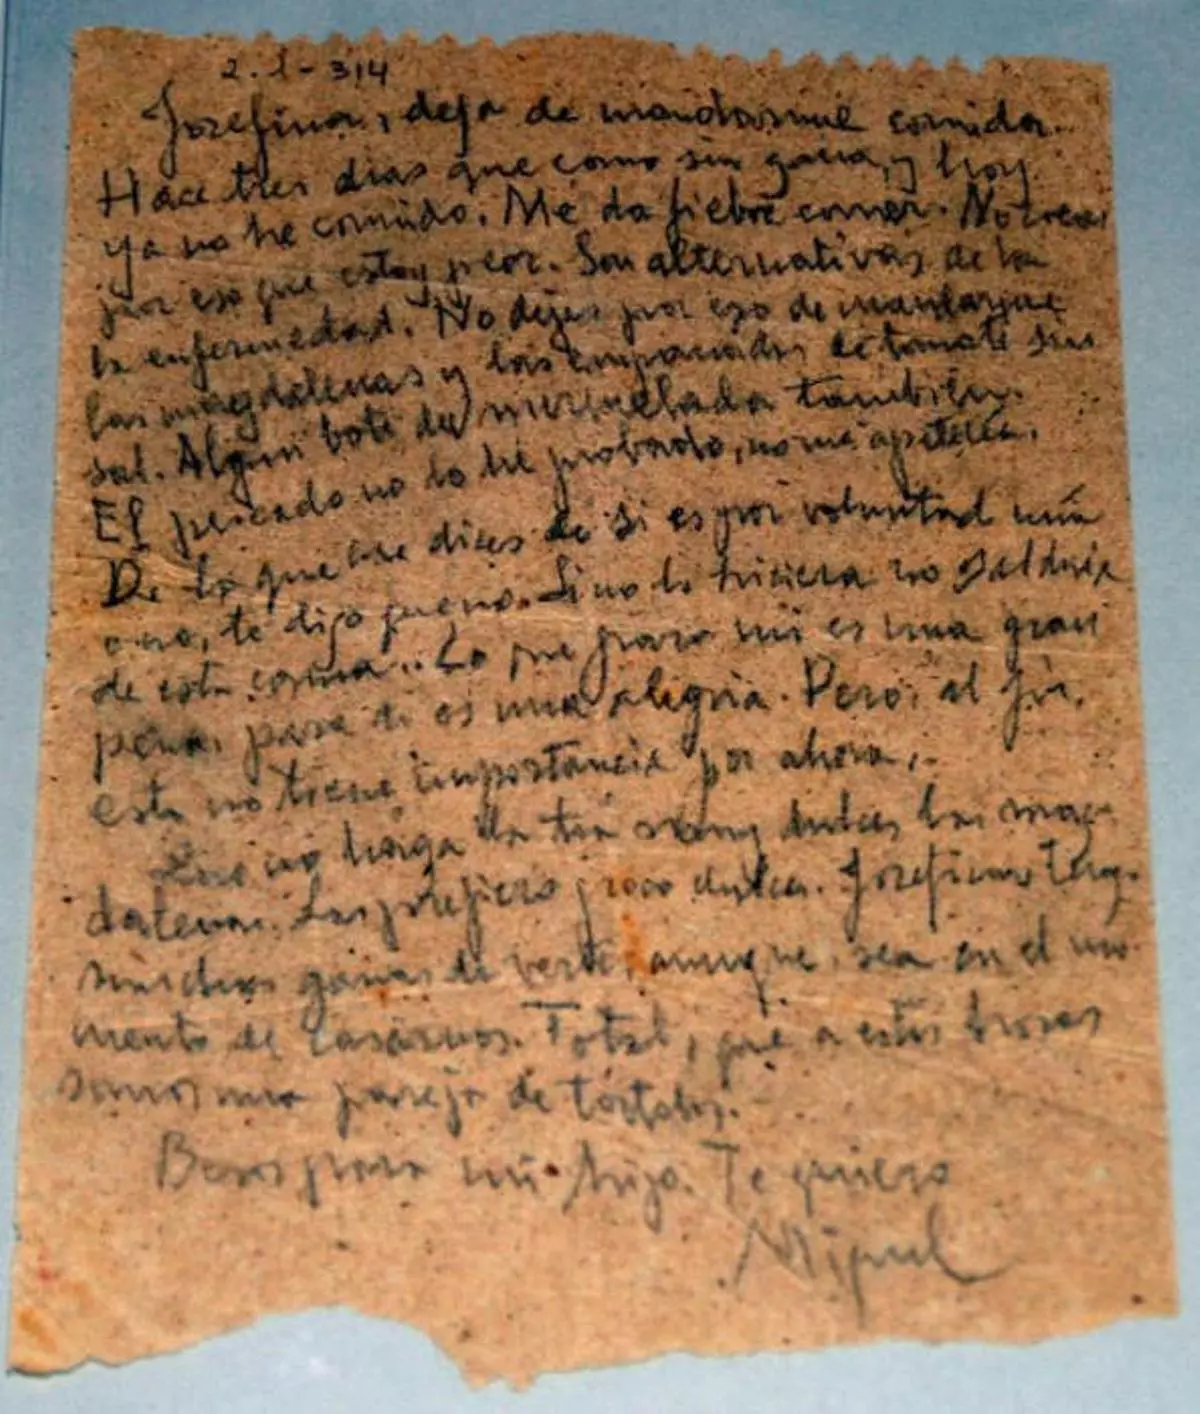 2.1-314
Josefina, deja de mandarme comida.
Hace tres días que como sin gana, y hoy
ya no he comido. Me da fiebre comer. No creas
por eso que estoy peor. Son alternativas de la
la enfermedad. No dejes por eso de mandarme
las magdalenas y las empanadas de tomate sin
sal. Algún bote de mermelada también.
El pescado no lo he probado, no me apetece.
De lo que me dices de si es por voluntad mía
o no, te digo que no. Si no lo hiciera no saldría
de esta cama. Lo que para mí es una gran
pena, para ti es una alegría. Pero, al fin,
esto no tiene importancia por ahora.
Que no haga la tía muy dulces las mag-
dalenas. Las prefiero poco dulces. Josefina: teng
ganas de verte, aunque sea en el mo-
mento de casarnos. Total, que a estas horas
somos una pareja de tórtolos.
Besos para mi hijo. Te quiero
Miguel